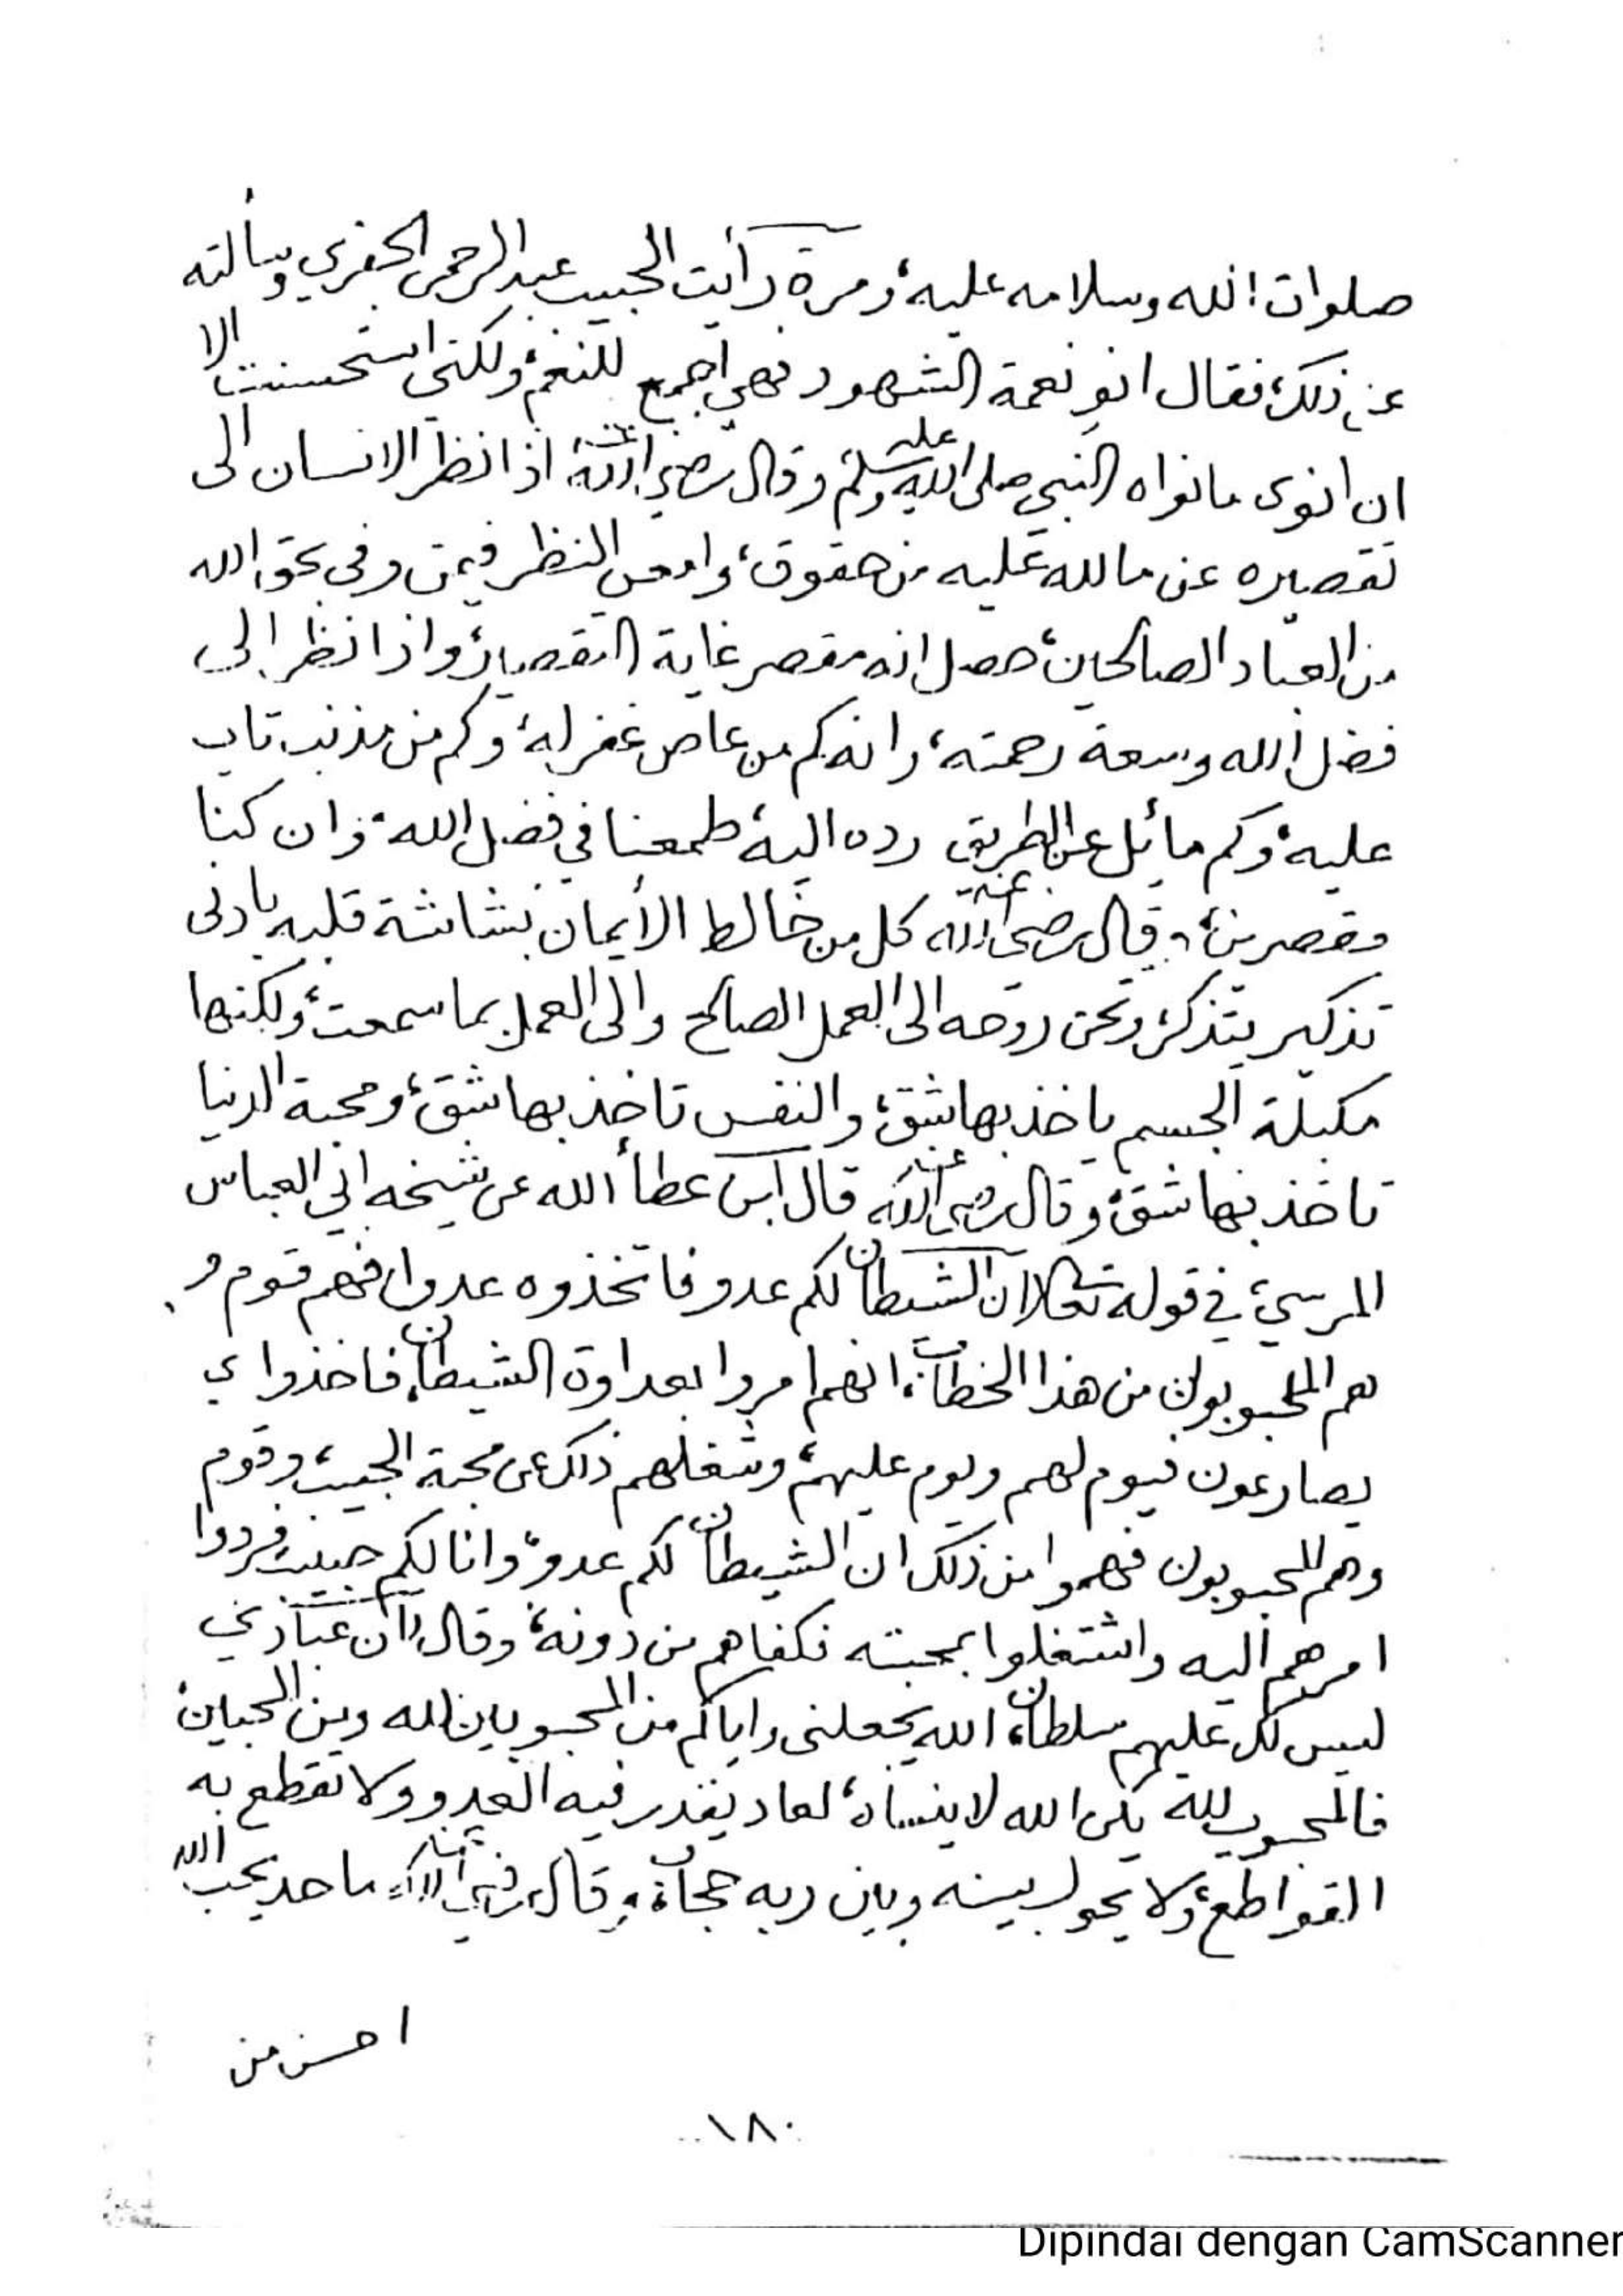 صلوات الله وسلامه عليه، ومرة رأيت الحبيب عبد الرحمن الجفري وسألته
عن ذلك، فقال انو نعمة الشهود فهي اجمع للنعم، ولكني استحسنت الا
ان انوى مانواه النبي صلى الله عليه وسلم وقال رضي الله عنه اذا نظر الانسان الى
تقصيره عن ما لله عليه من حقوق، وامعن النظر فيمن وفى بحق الله
من العباد الصالحين، حصل انه مقصر غاية التقصير، واذا نظر الى
فضل الله وسعة رحمته، وانه كم من عاص غفر له، وكم من مذنب تاب
عليه، وكم مائل عن الطريق رده اليه، طمعنا في فضل الله، وان كنا
مقصرين، وقال رضي الله عنه كل من خالط الأيمان بشاشة قلبه بادنى
تذكير يتذكر، وتحن روحه الى العمل الصالح والى العمل بما سمعت، ولكنها
مكبلة الجسم ياخذ بها شق، والنفس تاخذ بها شق، ومحبة الدنيا
تاخذ بها شق، وقال رضي الله عنه قال ابن عطأ الله عن شيخه ابي العباس
المرسي، في قوله تعالى ان الشيطان لكم عدو فاتخذوه عدوا، فهم قوم و
هم المحبوبون من هذا الخطاب، انهم امروا بعداوة الشيطان، فاخذوا ي
يصارعون فيوم لهم ويوم عليهم، وشغلهم ذلك عن محبة الحبيب، وقوم
وهم المحبوبون فهموا من ذلك ان الشيطان لكم عدو، وانا لكم حبيب فردوا
امرهم اليه واشتغلوا بمحبته فكفاهم من دونه، وقال ان عبادي
ليس لك عليهم سلطان، الله يجعلنى واياكم من المحبوبين لله ومن المحبين،
فالمحبوب لله يكن الله لا ينساه، لعاد يقدر فيه العدو ولا تقطع به
القواطع، ولا يحول بينه وبين ربه حجاب، وقال رضي الله عنه ما حد يحب الله
احسن من
١٨٠
Dipindai dengan CamScanner